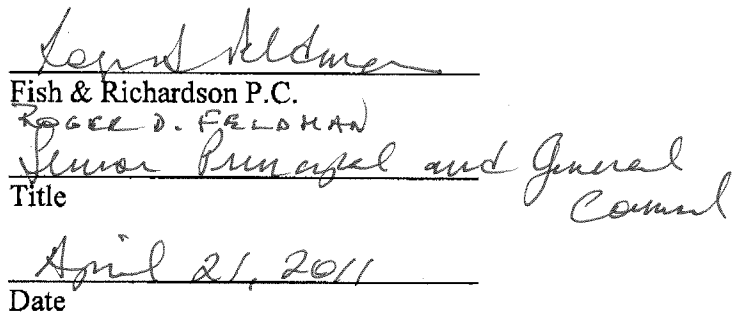 Roger D. Feldman
Fish & Richardson P.C.
ROGER D. FELDMAN
Senior Principal and General
Counsel
Title
April 21, 2011
Date